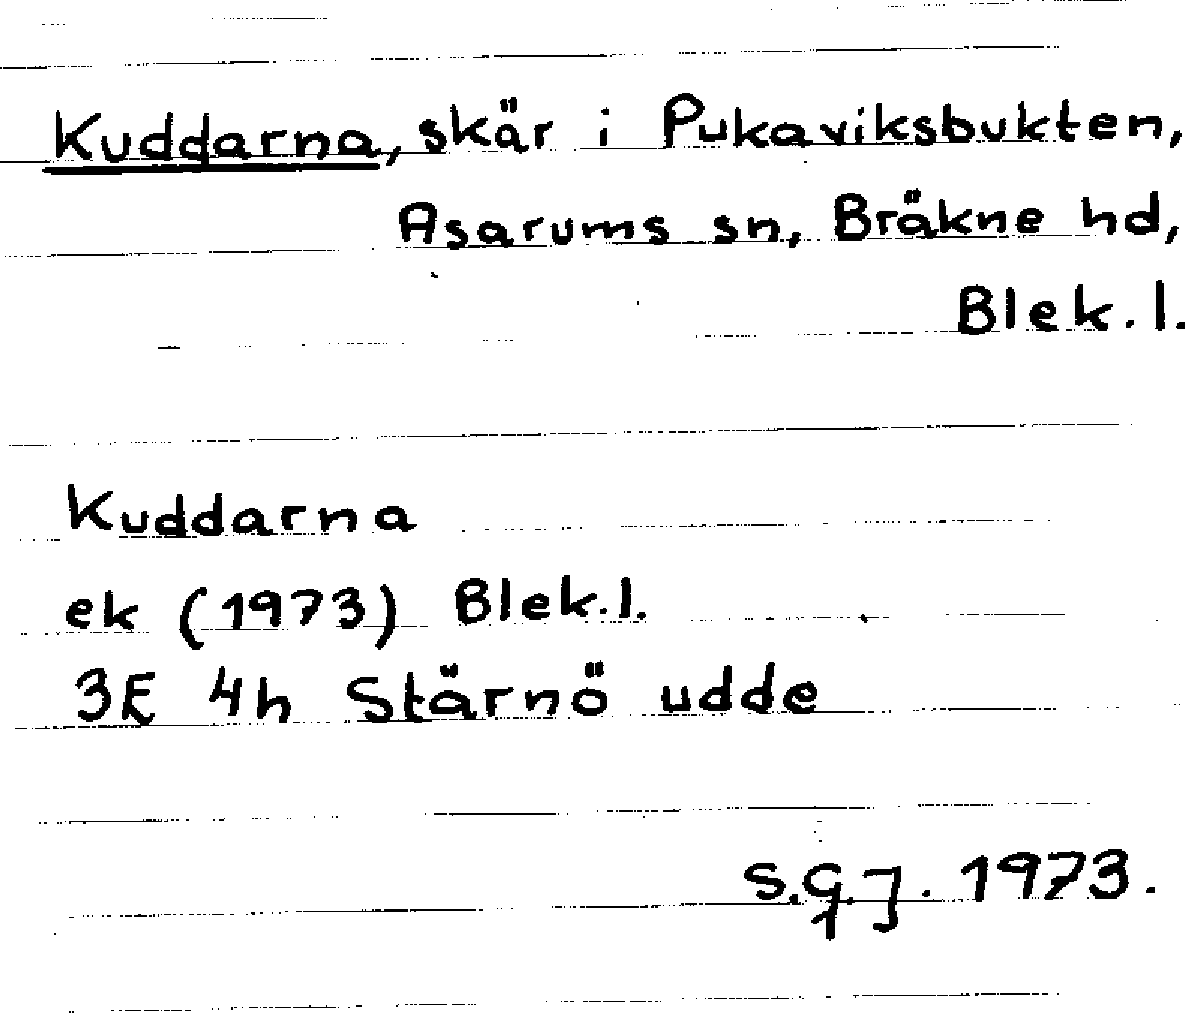 Kuddarna, skär i Pukaviksbukten,
Asarums sn, Bräkne hd,
Blek. l.
Kuddarna
ek (1973) Blek. l.
3E 4h Stärnö udde
S.G.J. 1973.